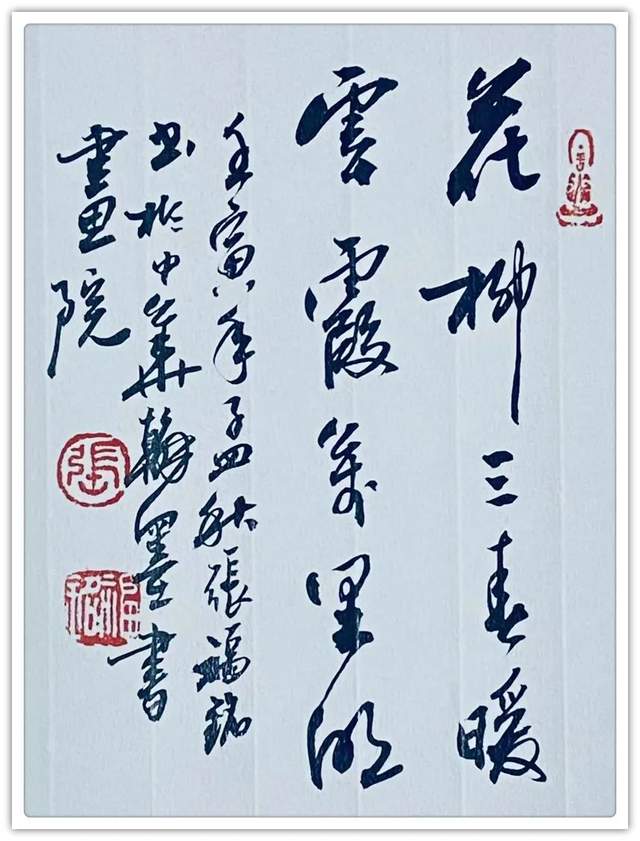 花柳三春暖
雲霞萬里明
壬寅年孟秋張福銘
书於中華翰墨書
畫院
張